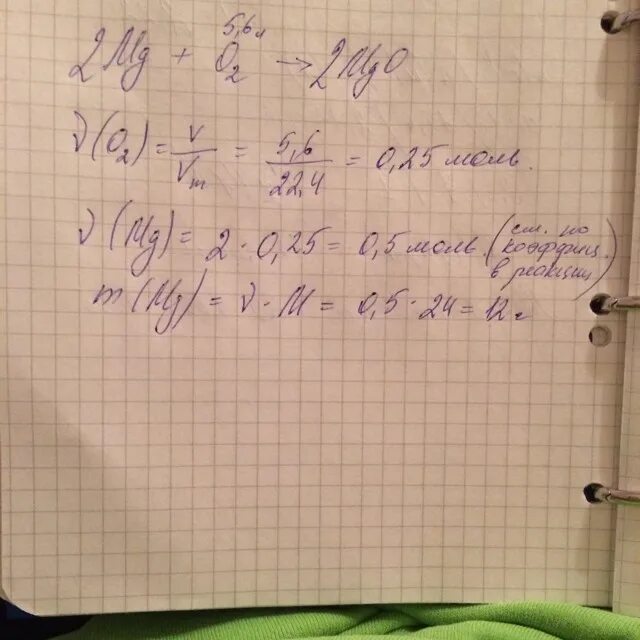 5,6 л
2Mg + O₂ → 2MgO
ν(O₂) = V/Vm = 5,6/22,4 = 0,25 моль.
ν(Mg) = 2 · 0,25 = 0,5 моль. (см. по коэффиц. в реакции)
m(Mg) = ν · M = 0,5 · 24 = 12 г